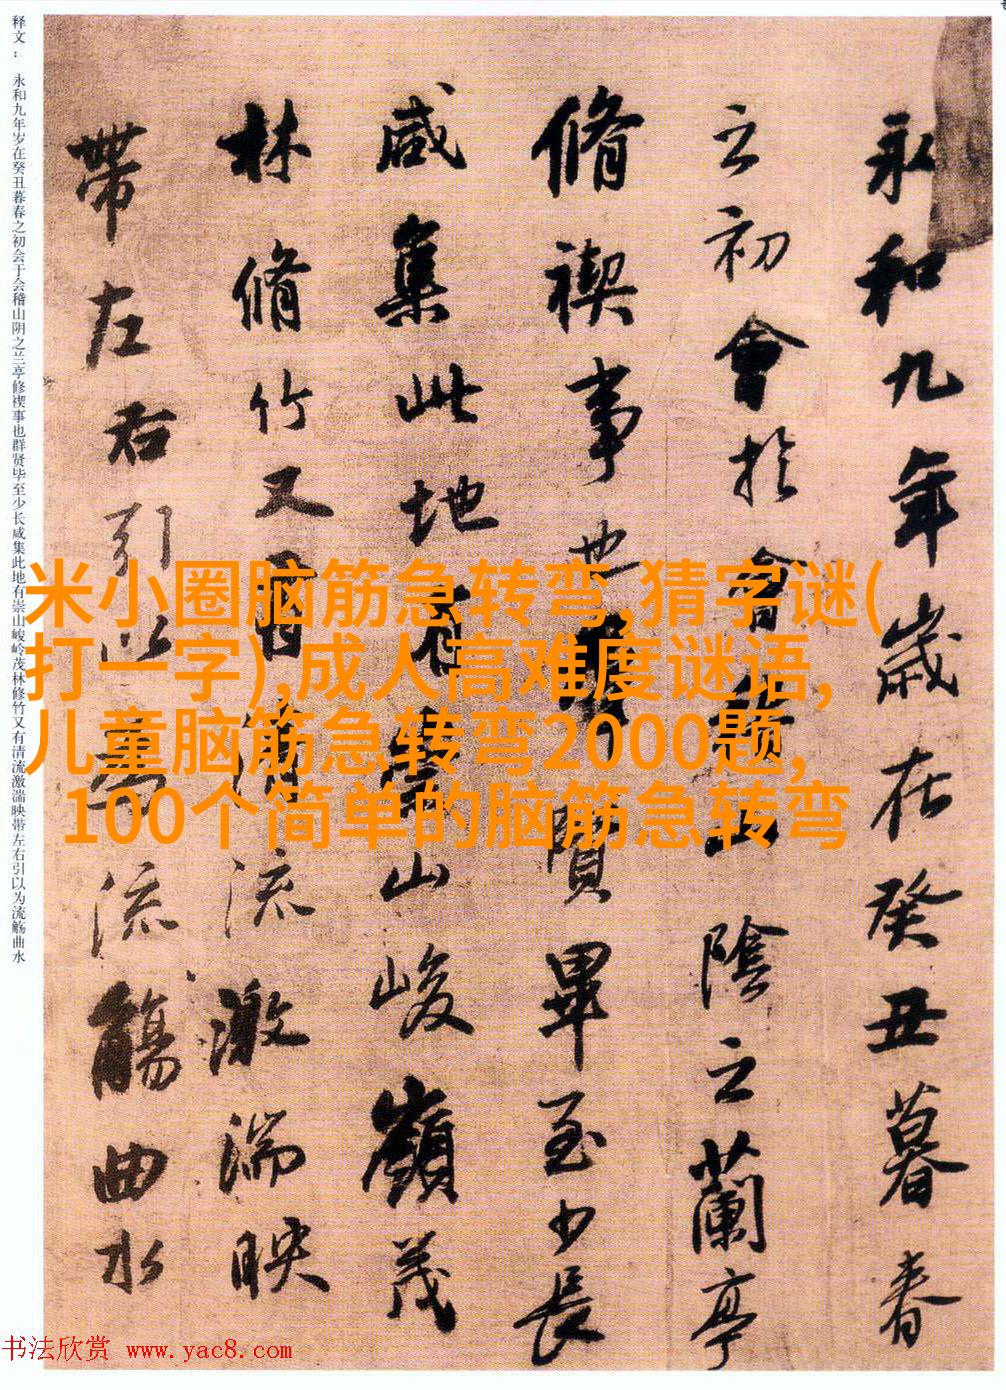 永和九年歲在癸丑暮春
之初會於會稽山陰之蘭亭
脩禊事也群賢畢至少長
咸集此地有崇山峻嶺茂
林脩竹又有清流激湍映
帶左右引以為流觴曲水
释文：永和九年岁在癸丑暮春之初会于会稽山阴之兰亭修禊事也群贤毕至少长咸集此地有崇山峻岭茂林修竹又有清流激湍映带左右引以为流觞曲水
米小圈脑筋急转弯,猜字谜(
打一字),成人高难度谜语,
儿童脑筋急转弯2000题,
100个简单的脑筋急转弯
书法欣赏 www.yac8.com